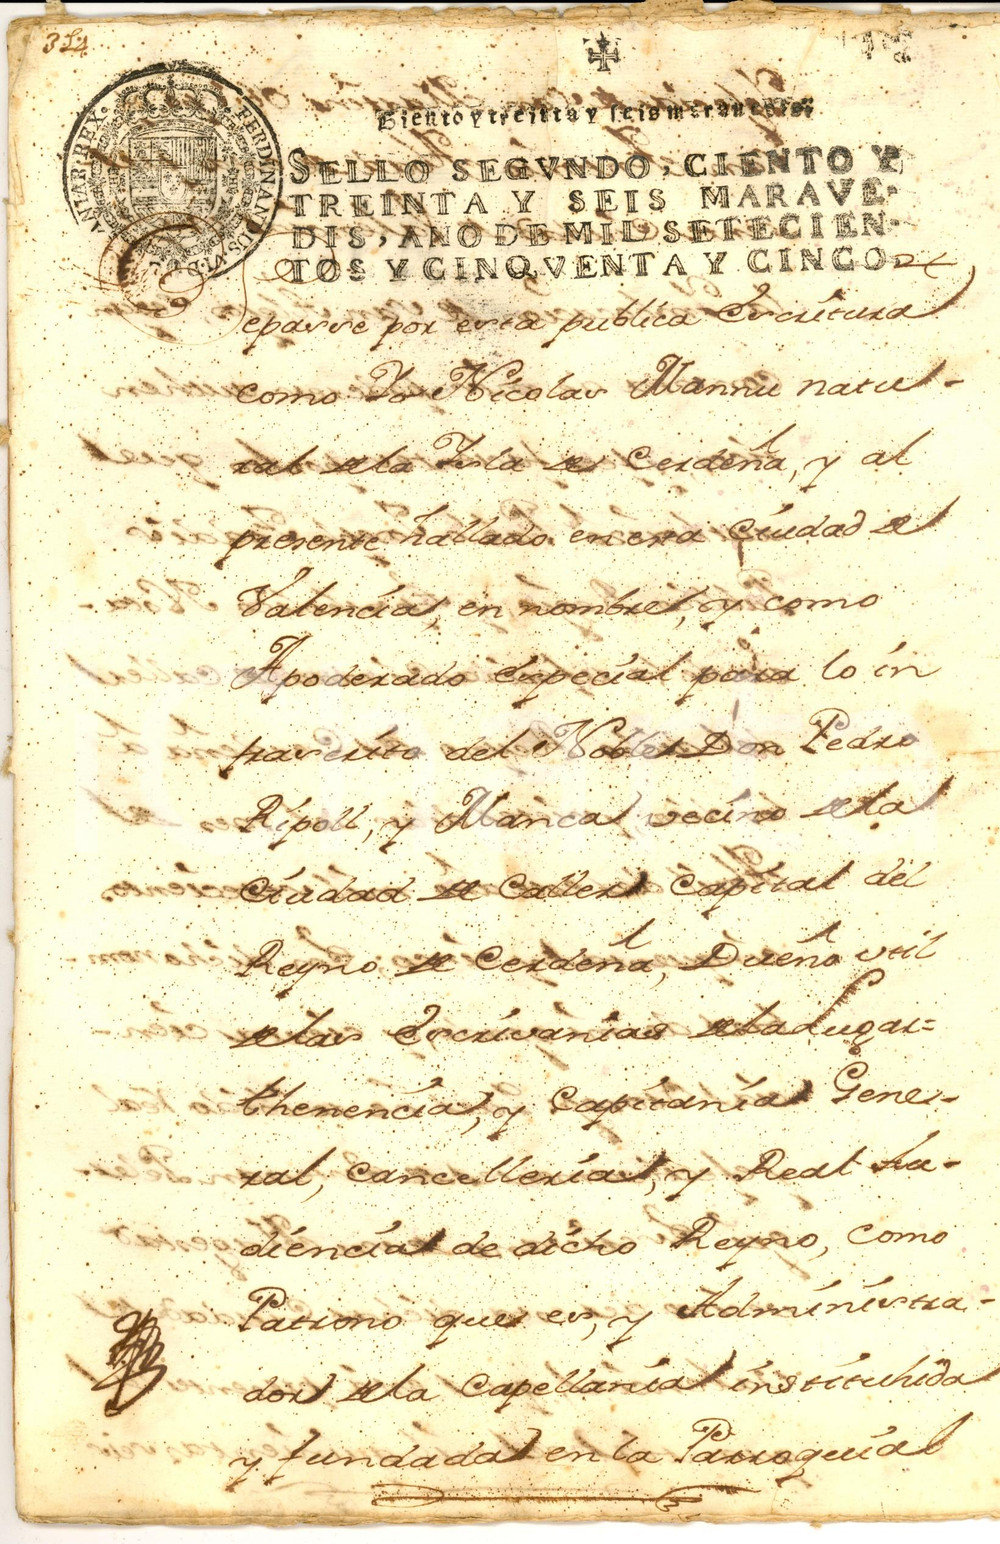 314
Ciento y treinta y seis maravedis.
FERDINANDUS.VI.D.G. HISPANIAR.REX.
SELLO SEGVNDO, CIENTO Y
TREINTA Y SEIS MARAVE-
DIS, AÑO DE MIL SETECIEN-
TOS Y CINQVENTA Y CINCO
Sepasse por esta publica Escritura
como Yo Nicolas Mannu natu-
ral de la Isla de Cerdeña, y al
presente hallado en esta Ciudad de
Valencia, en nombre, y como
Apoderado especial para lo in
frascrito del Noble Don Pedro
Ripoll, y Manca, vecino de la
Ciudad de Caller Capital del
Reyno de Cerdeña, Dueño util
de las Escrivanias de la Lugar-
thenencia, y Capitania Gene-
ral, Cancelleria, y Real Au-
diencia de dicho Reyno, como
Patrono que es, y Administra-
dor de la Capellania instituhida
y fundada en la Parroquial